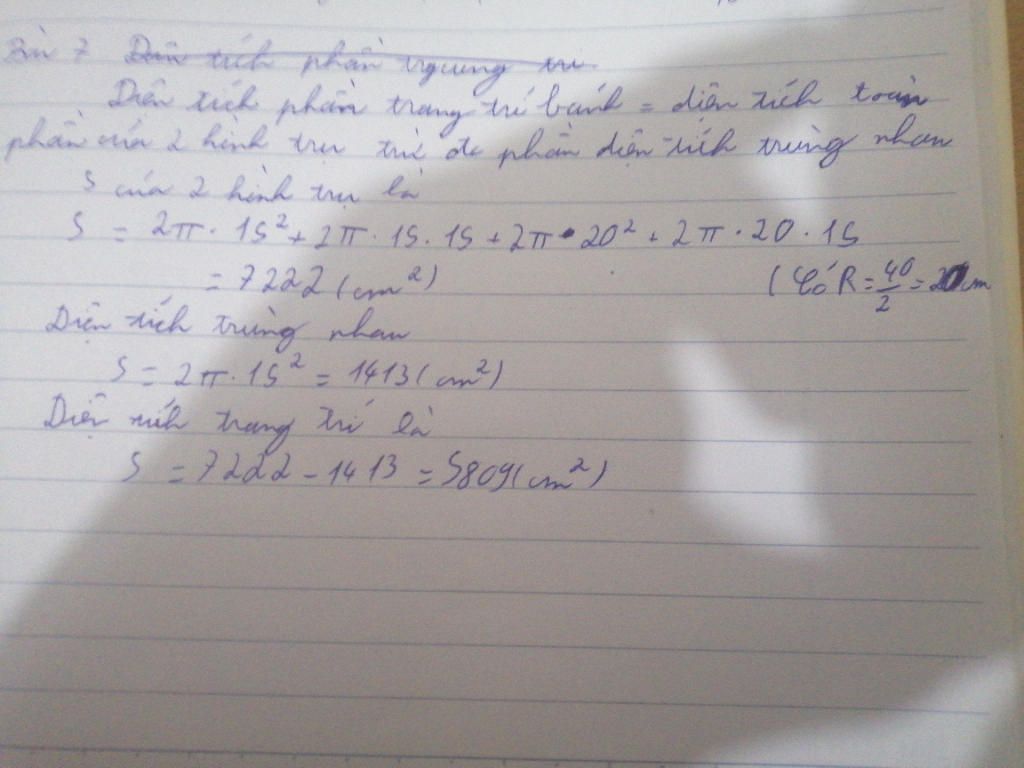 Bài 7 Diện tích phần trang trí
Diện tích phần trang trí bánh = diện tích toàn
phần của 2 hình trụ trừ đi phần diện tích trùng nhau
S của 2 hình trụ là
S = 2π · 15² + 2π · 15 · 15 + 2π · 20² + 2π · 20 · 15
= 7222 (cm²) ( Có R = 40/2 = 20cm
Diện tích trùng nhau
S = 2π · 15² = 1413 (cm²)
Diện tích trang trí là
S = 7222 - 1413 = 5809 (cm²)